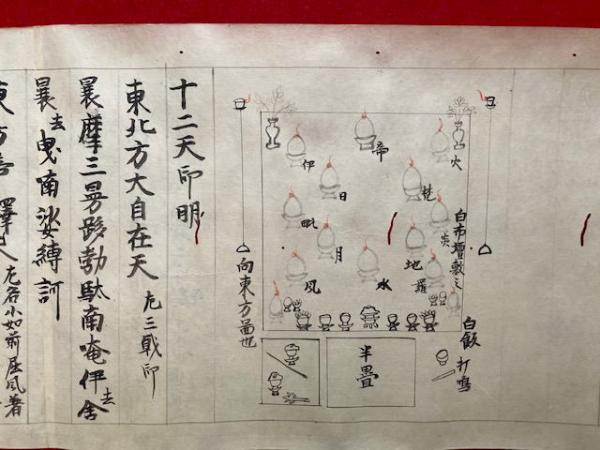 火
帝
伊
日
梵
炎
毗
月
地
羅
風
水
白布壇敷之
白飯
打鳴
半畳
向東方面也
十二天印明
東北方大自在天 左三戟印
曩摩三曼多勃駄南唵伊去舍
曩去曳喃娑縛訶